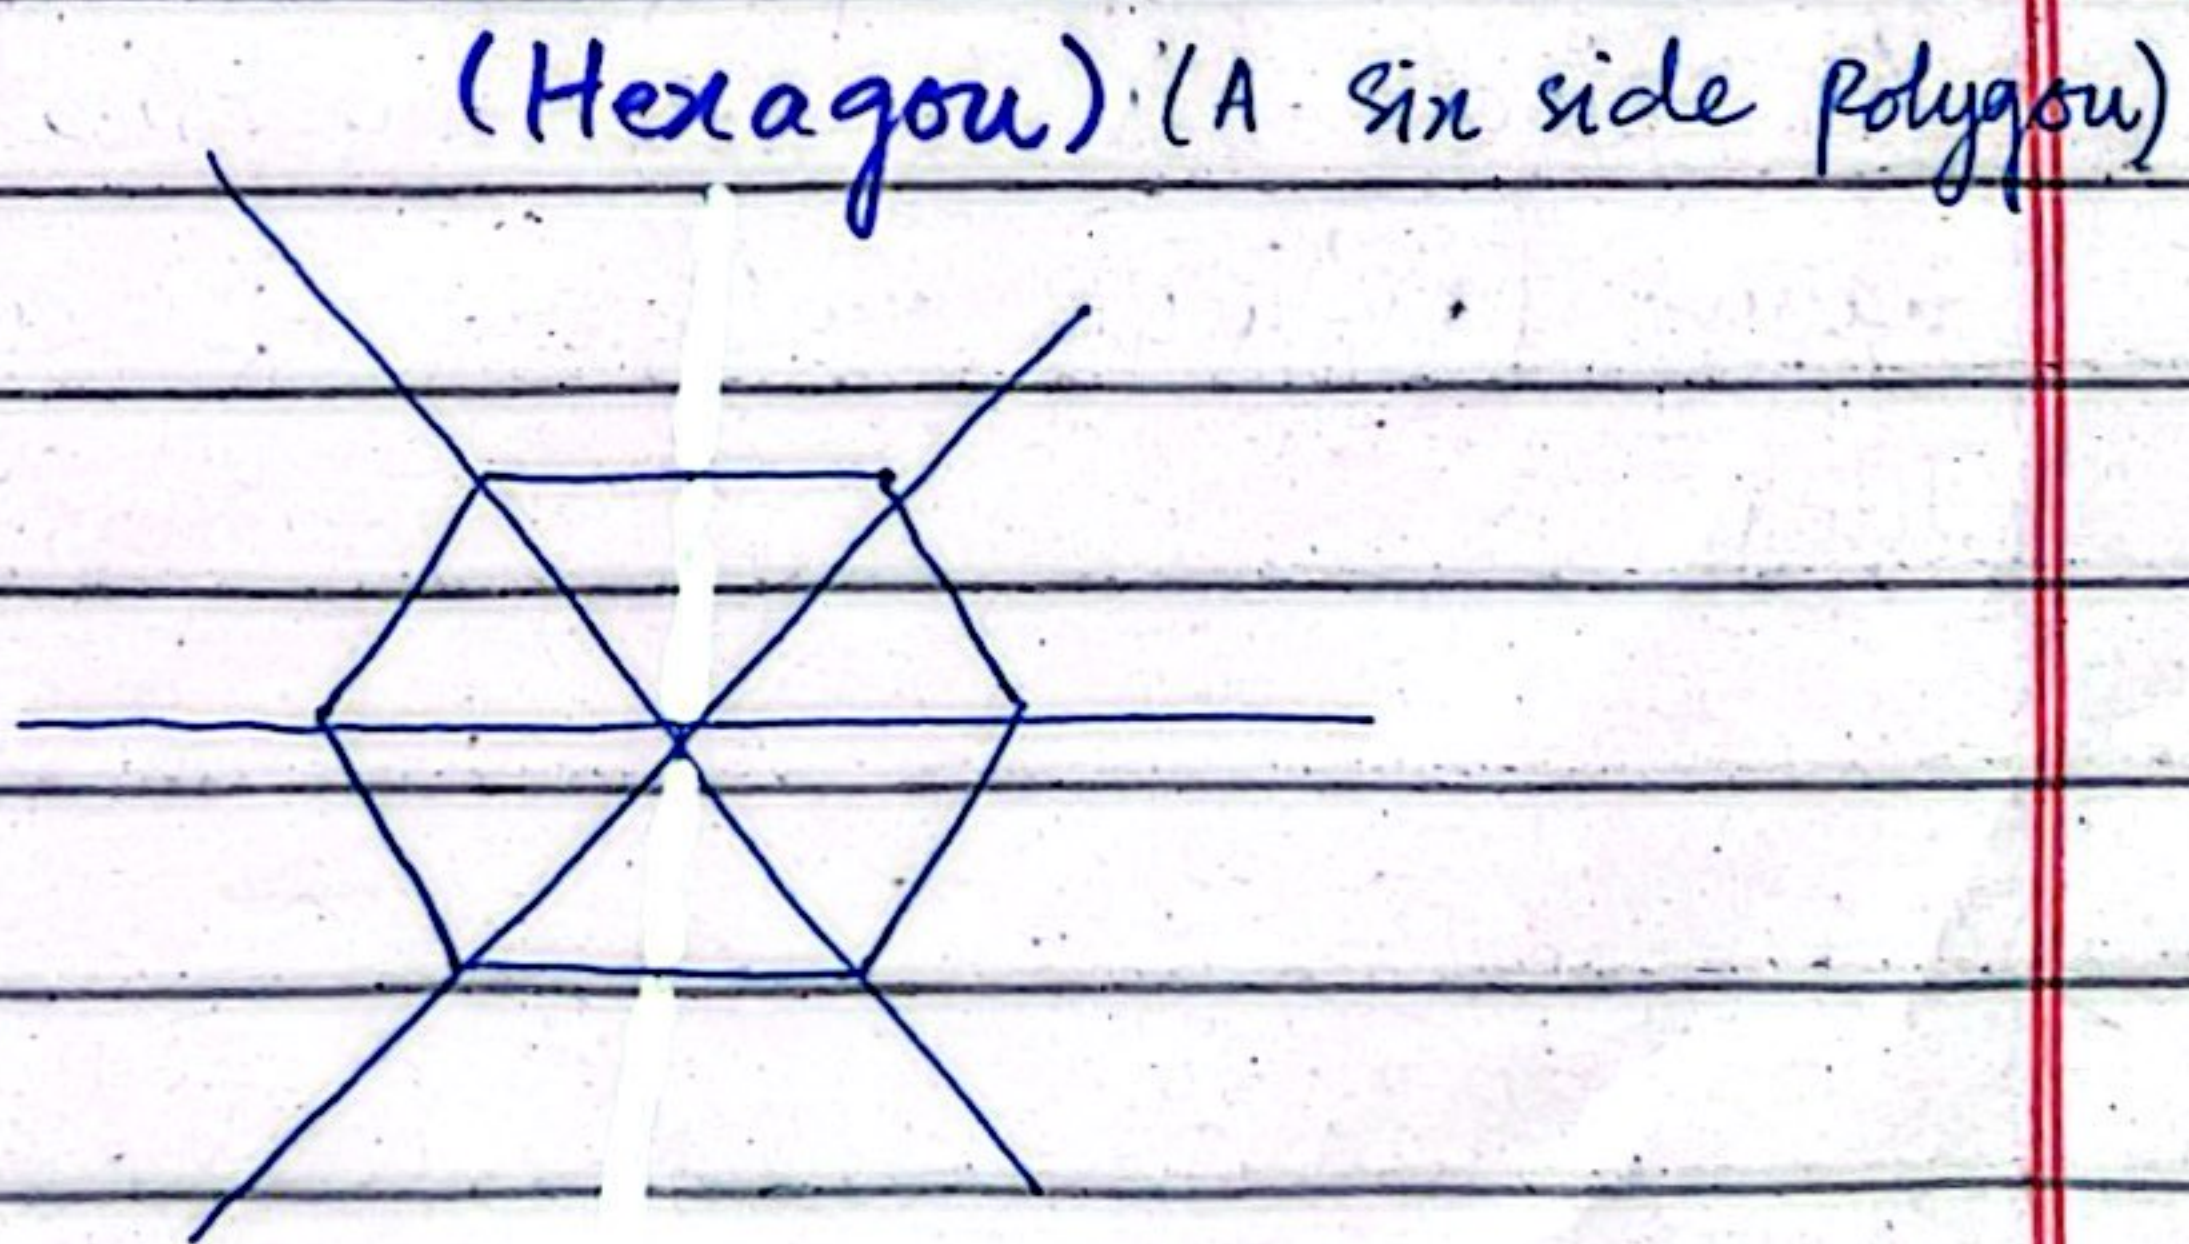 (Hexagon) (A six side polygon)